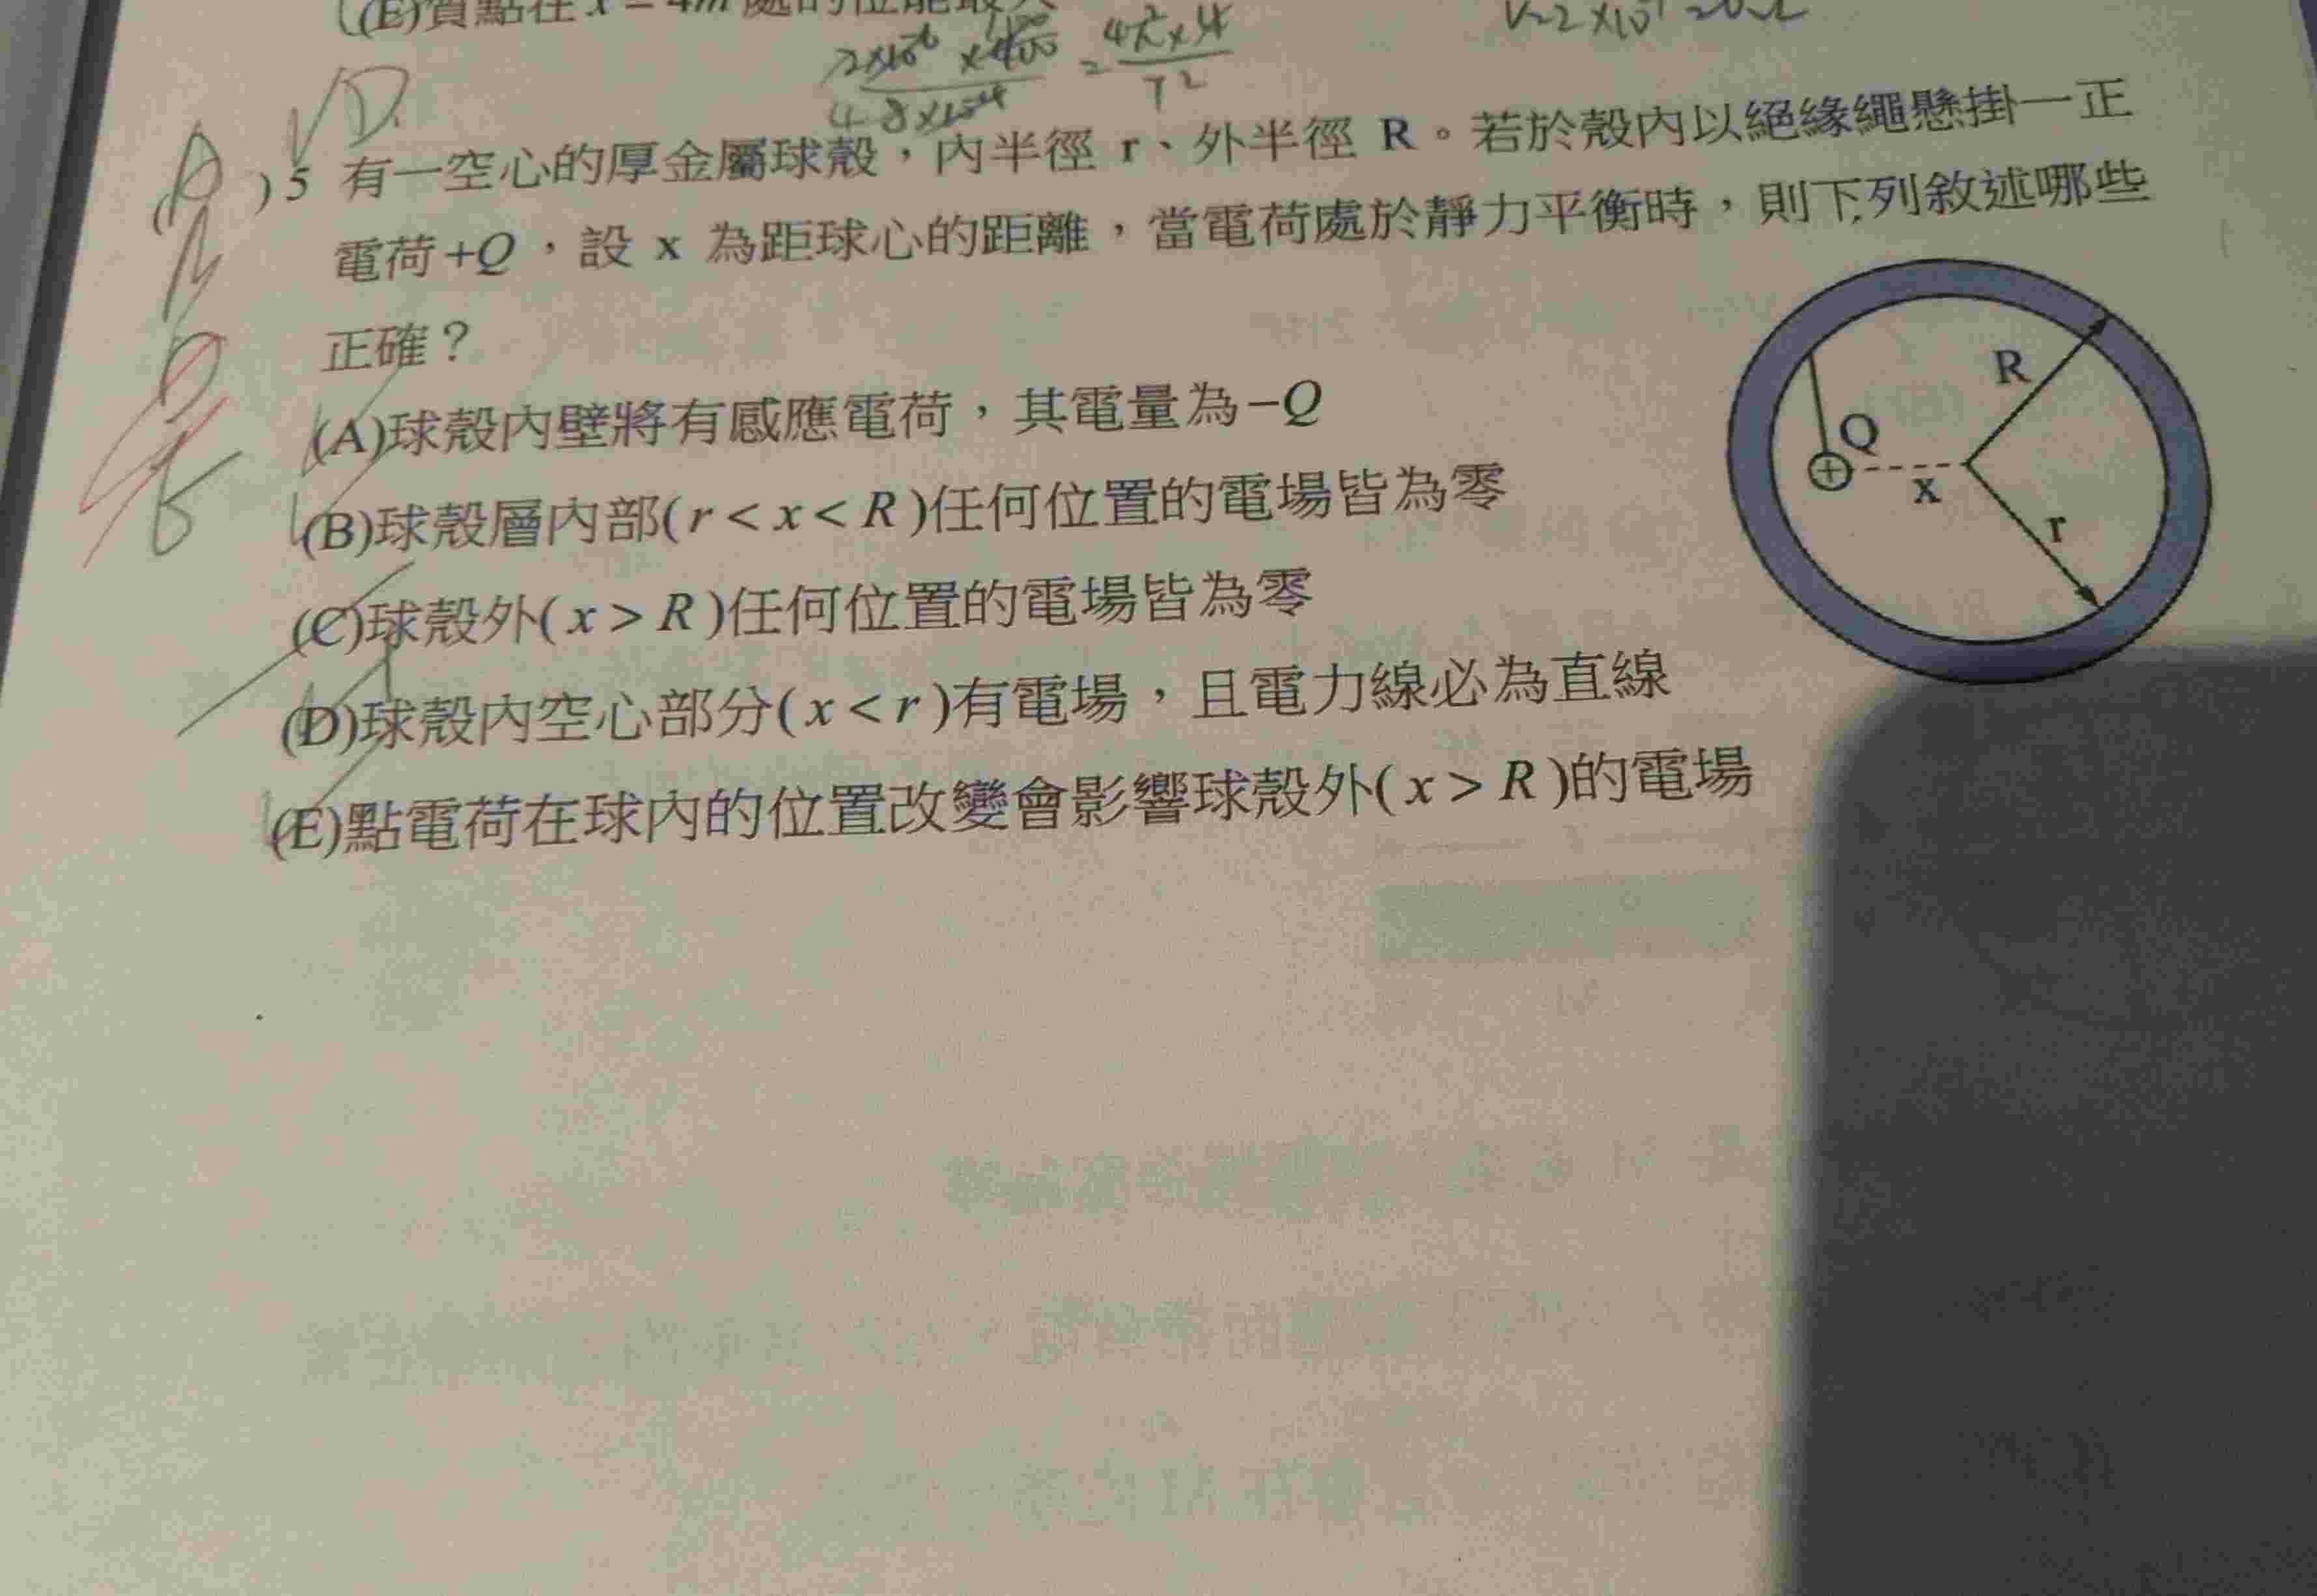 (E)質點在 x = 4m 處的位能最大
2×10⁻⁶ ×400 = 4×4
8×10⁻⁴ 72
D.
( )5 有一空心的厚金屬球殼，內半徑 r、外半徑 R。若於殼內以絕緣繩懸掛一正
電荷+Q，設 x 為距球心的距離，當電荷處於靜力平衡時，則下列敘述哪些
正確？
(A)球殼內壁將有感應電荷，其電量為−Q
(B)球殼層內部( r < x < R )任何位置的電場皆為零
(C)球殼外( x > R )任何位置的電場皆為零
(D)球殼內空心部分( x < r )有電場，且電力線必為直線
(E)點電荷在球內的位置改變會影響球殼外( x > R )的電場
R
Q
+
x
r